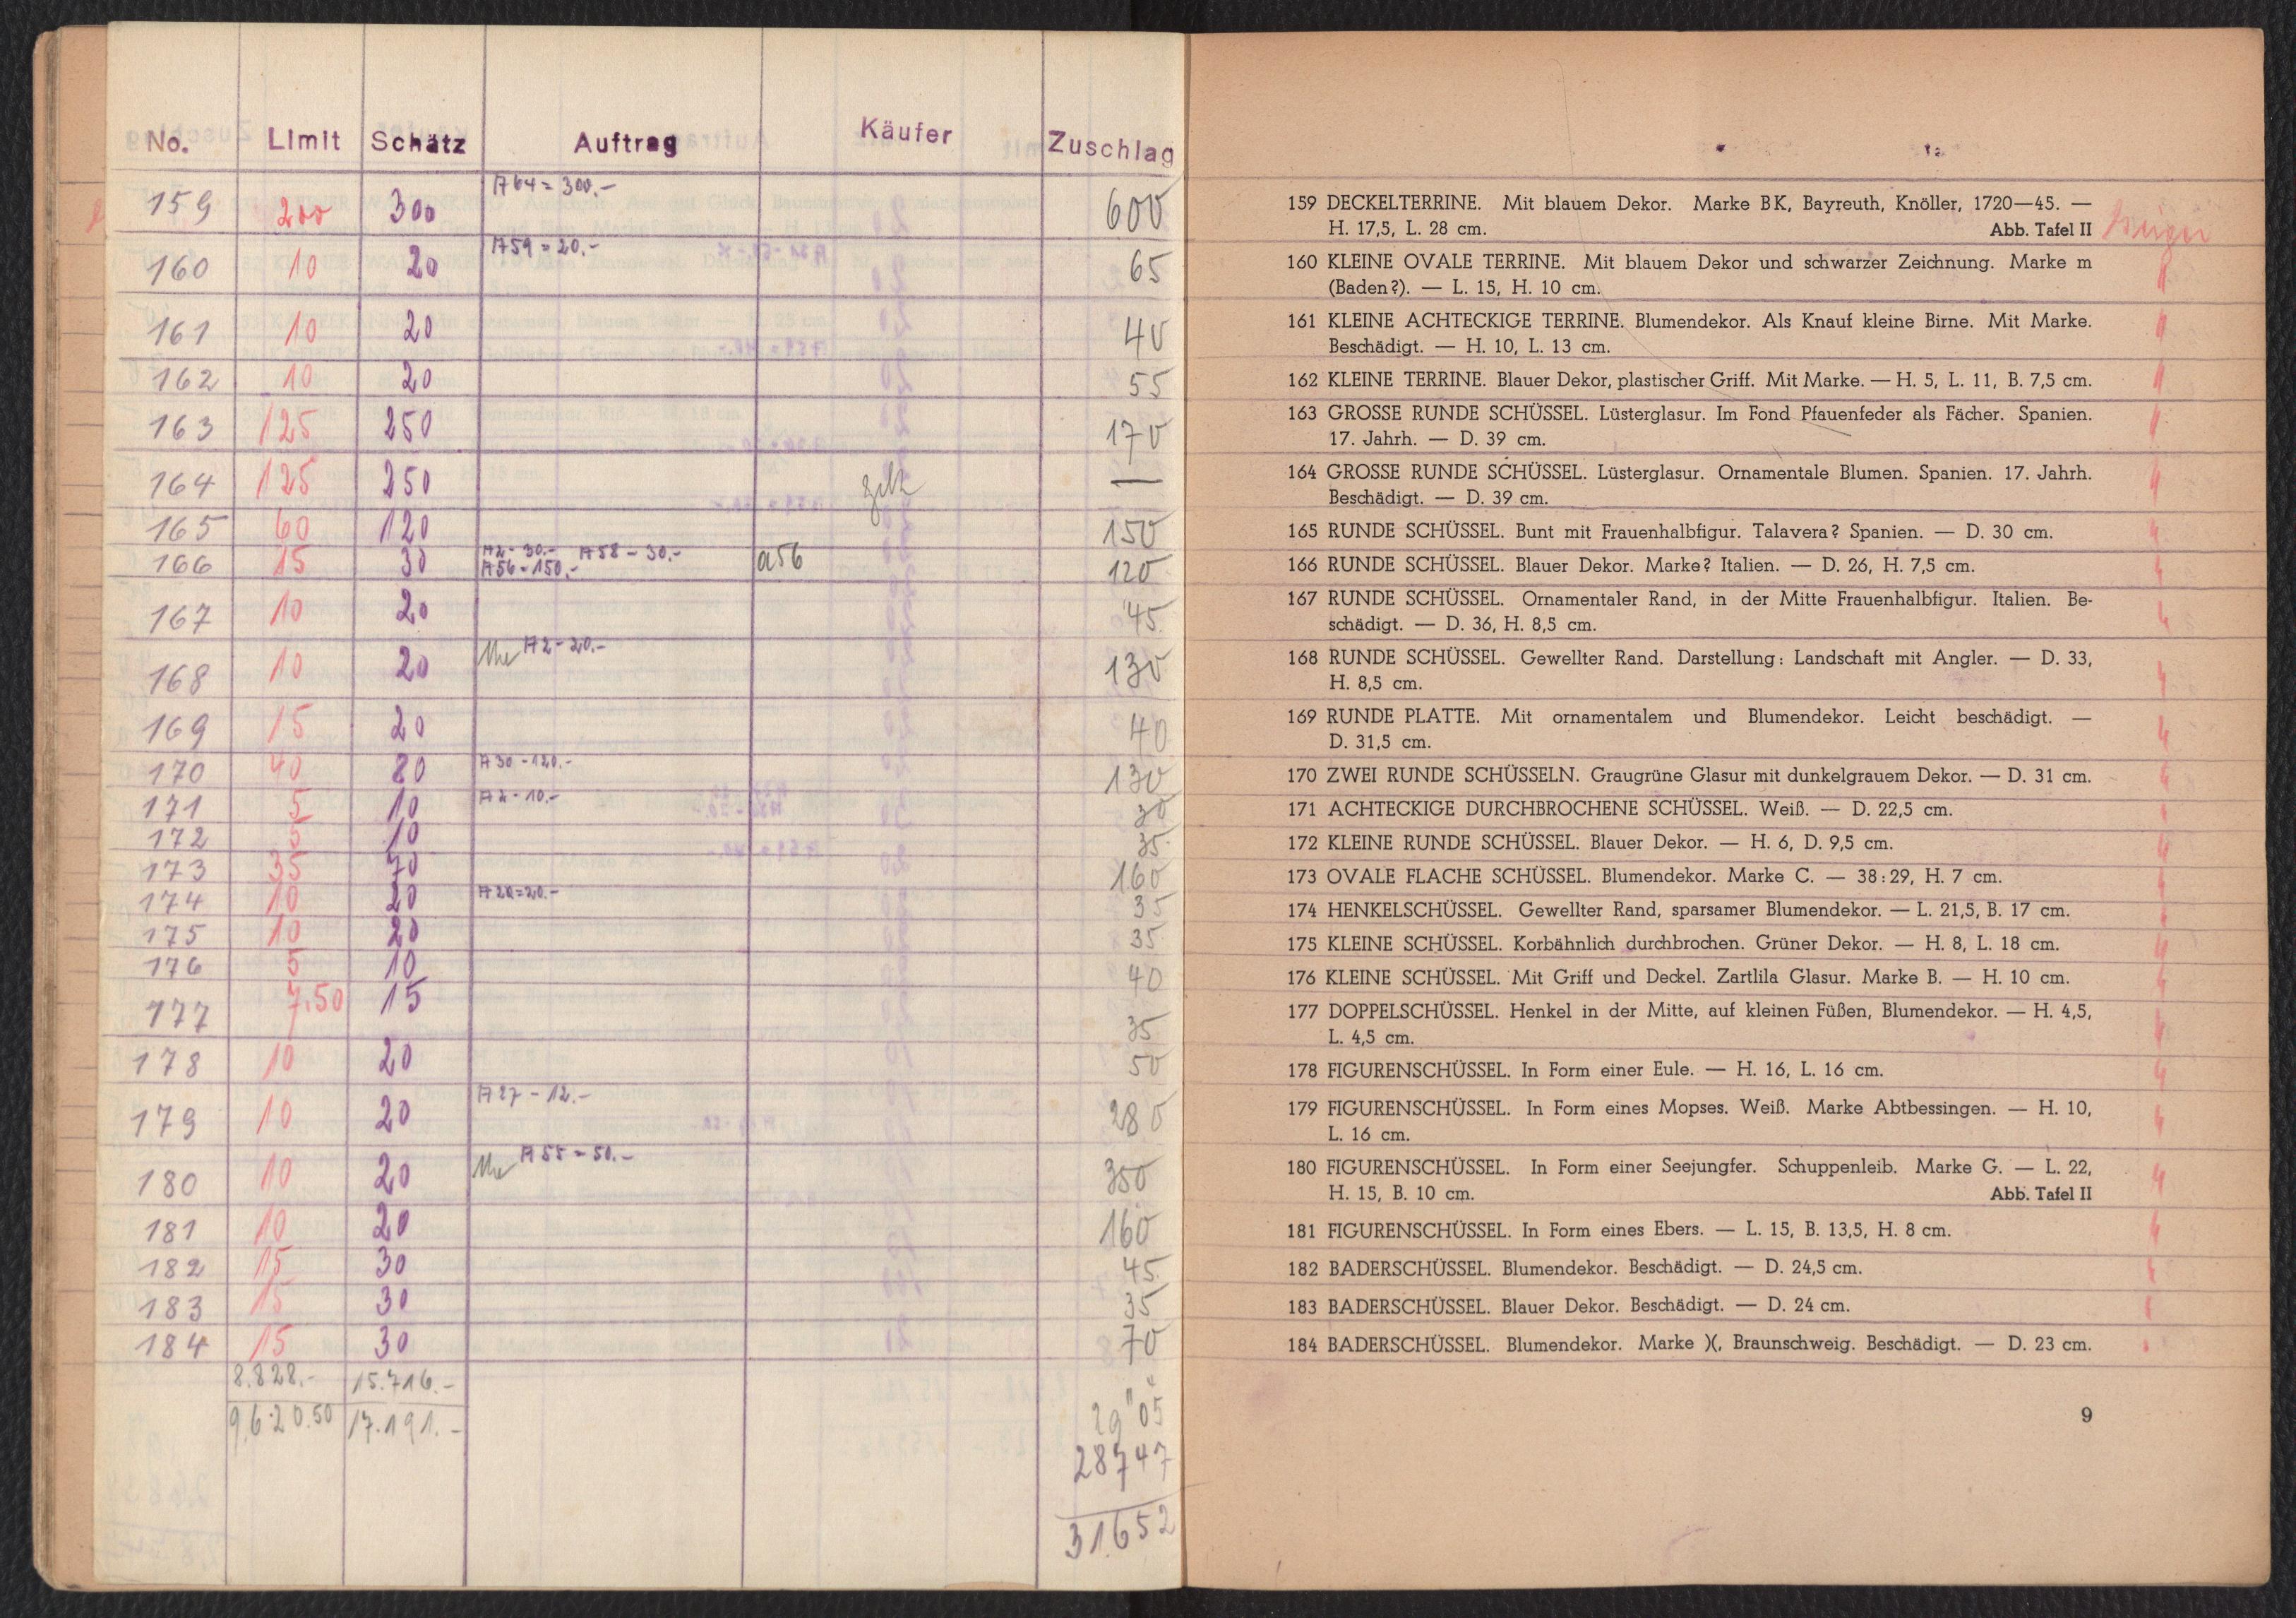 No. Limit Schätz Auftrag Käufer Zuschlag
159 200 300 A64 = 300.- 600
160 10 20 A59 = 20.- 65
161 10 20 40
162 10 20 55
163 125 250 170
164 125 250 —
165 60 120 150
166 15 30 A2 - 30.- A58 - 30.- a56 120
A56 - 150.-
167 10 20 45.
168 10 20 A2 - 20.- 130
169 15 20 40
170 40 80 A30 - 120.- 130
171 5 10 A2 - 10.- 30
172 5 10 35.
173 35 70 160
174 10 20 35
175 10 20 35.
176 5 10 40
177 7.50 15 35
178 10 20 50
179 10 20 A27 - 12.- 280
180 10 20 A55 = 50.- 350
181 10 20 160
182 15 30 45.
183 15 30 35
184 15 30 70
8.828.- 15.716.-
9.620.50 17.191.-
2905
28747
31652
159 DECKELTERRINE. Mit blauem Dekor. Marke BK, Bayreuth, Knöller, 1720—45. —
H. 17,5, L. 28 cm. Abb. Tafel II
160 KLEINE OVALE TERRINE. Mit blauem Dekor und schwarzer Zeichnung. Marke m
(Baden?). — L. 15, H. 10 cm.
161 KLEINE ACHTECKIGE TERRINE. Blumendekor. Als Knauf kleine Birne. Mit Marke.
Beschädigt. — H. 10, L. 13 cm.
162 KLEINE TERRINE. Blauer Dekor, plastischer Griff. Mit Marke. — H. 5, L. 11, B. 7,5 cm.
163 GROSSE RUNDE SCHÜSSEL. Lüsterglasur. Im Fond Pfauenfeder als Fächer. Spanien.
17. Jahrh. — D. 39 cm.
164 GROSSE RUNDE SCHÜSSEL. Lüsterglasur. Ornamentale Blumen. Spanien. 17. Jahrh.
Beschädigt. — D. 39 cm.
165 RUNDE SCHÜSSEL. Bunt mit Frauenhalbfigur. Talavera? Spanien. — D. 30 cm.
166 RUNDE SCHÜSSEL. Blauer Dekor. Marke? Italien. — D. 26, H. 7,5 cm.
167 RUNDE SCHÜSSEL. Ornamentaler Rand, in der Mitte Frauenhalbfigur. Italien. Be-
schädigt. — D. 36, H. 8,5 cm.
168 RUNDE SCHÜSSEL. Gewellter Rand. Darstellung: Landschaft mit Angler. — D. 33,
H. 8,5 cm.
169 RUNDE PLATTE. Mit ornamentalem und Blumendekor. Leicht beschädigt. —
D. 31,5 cm.
170 ZWEI RUNDE SCHÜSSELN. Graugrüne Glasur mit dunkelgrauem Dekor. — D. 31 cm.
171 ACHTECKIGE DURCHBROCHENE SCHÜSSEL. Weiß. — D. 22,5 cm.
172 KLEINE RUNDE SCHÜSSEL. Blauer Dekor. — H. 6, D. 9,5 cm.
173 OVALE FLACHE SCHÜSSEL. Blumendekor. Marke C. — 38:29, H. 7 cm.
174 HENKELSCHÜSSEL. Gewellter Rand, sparsamer Blumendekor. — L. 21,5, B. 17 cm.
175 KLEINE SCHÜSSEL. Korbähnlich durchbrochen. Grüner Dekor. — H. 8, L. 18 cm.
176 KLEINE SCHÜSSEL. Mit Griff und Deckel. Zartlila Glasur. Marke B. — H. 10 cm.
177 DOPPELSCHÜSSEL. Henkel in der Mitte, auf kleinen Füßen, Blumendekor. — H. 4,5,
L. 4,5 cm.
178 FIGURENSCHÜSSEL. In Form einer Eule. — H. 16, L. 16 cm.
179 FIGURENSCHÜSSEL. In Form eines Mopses. Weiß. Marke Abtbessingen. — H. 10,
L. 16 cm.
180 FIGURENSCHÜSSEL. In Form einer Seejungfer. Schuppenleib. Marke G. — L. 22,
H. 15, B. 10 cm. Abb. Tafel II
181 FIGURENSCHÜSSEL. In Form eines Ebers. — L. 15, B. 13,5, H. 8 cm.
182 BADERSCHÜSSEL. Blumendekor. Beschädigt. — D. 24,5 cm.
183 BADERSCHÜSSEL. Blauer Dekor. Beschädigt. — D. 24 cm.
184 BADERSCHÜSSEL. Blumendekor. Marke )(, Braunschweig. Beschädigt. — D. 23 cm.
9